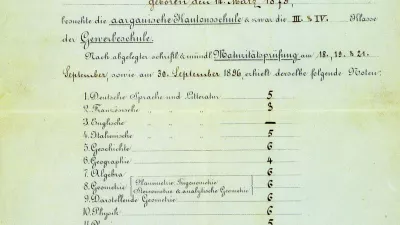 geboren den 14. März 1879,
besuchte die aargauische Kantonsschule & zwar die III. & IV. Klasse
der Gewerbeschule.
Nach abgelegter schriftl. & mündl. Maturitätsprüfung am 18., 19. & 21.
September, sowie am 30. September 1896, erhielt derselbe folgende Noten:
1. Deutsche Sprache und Litteratur 5
2. Französische " " 3
3. Englische " " —
4. Italienische " " 5
5. Geschichte 6
6. Geographie 4
7. Algebra 6
8. Geometrie (Planimetrie, Trigonometrie 6
Stereometrie & analytische Geometrie) 6
9. Darstellende Geometrie 6
10. Physik 6
11. 5